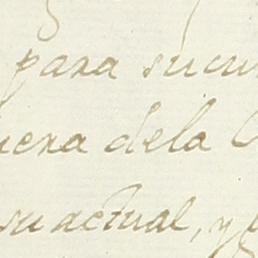 para sucu
uera dela C
su actual, y